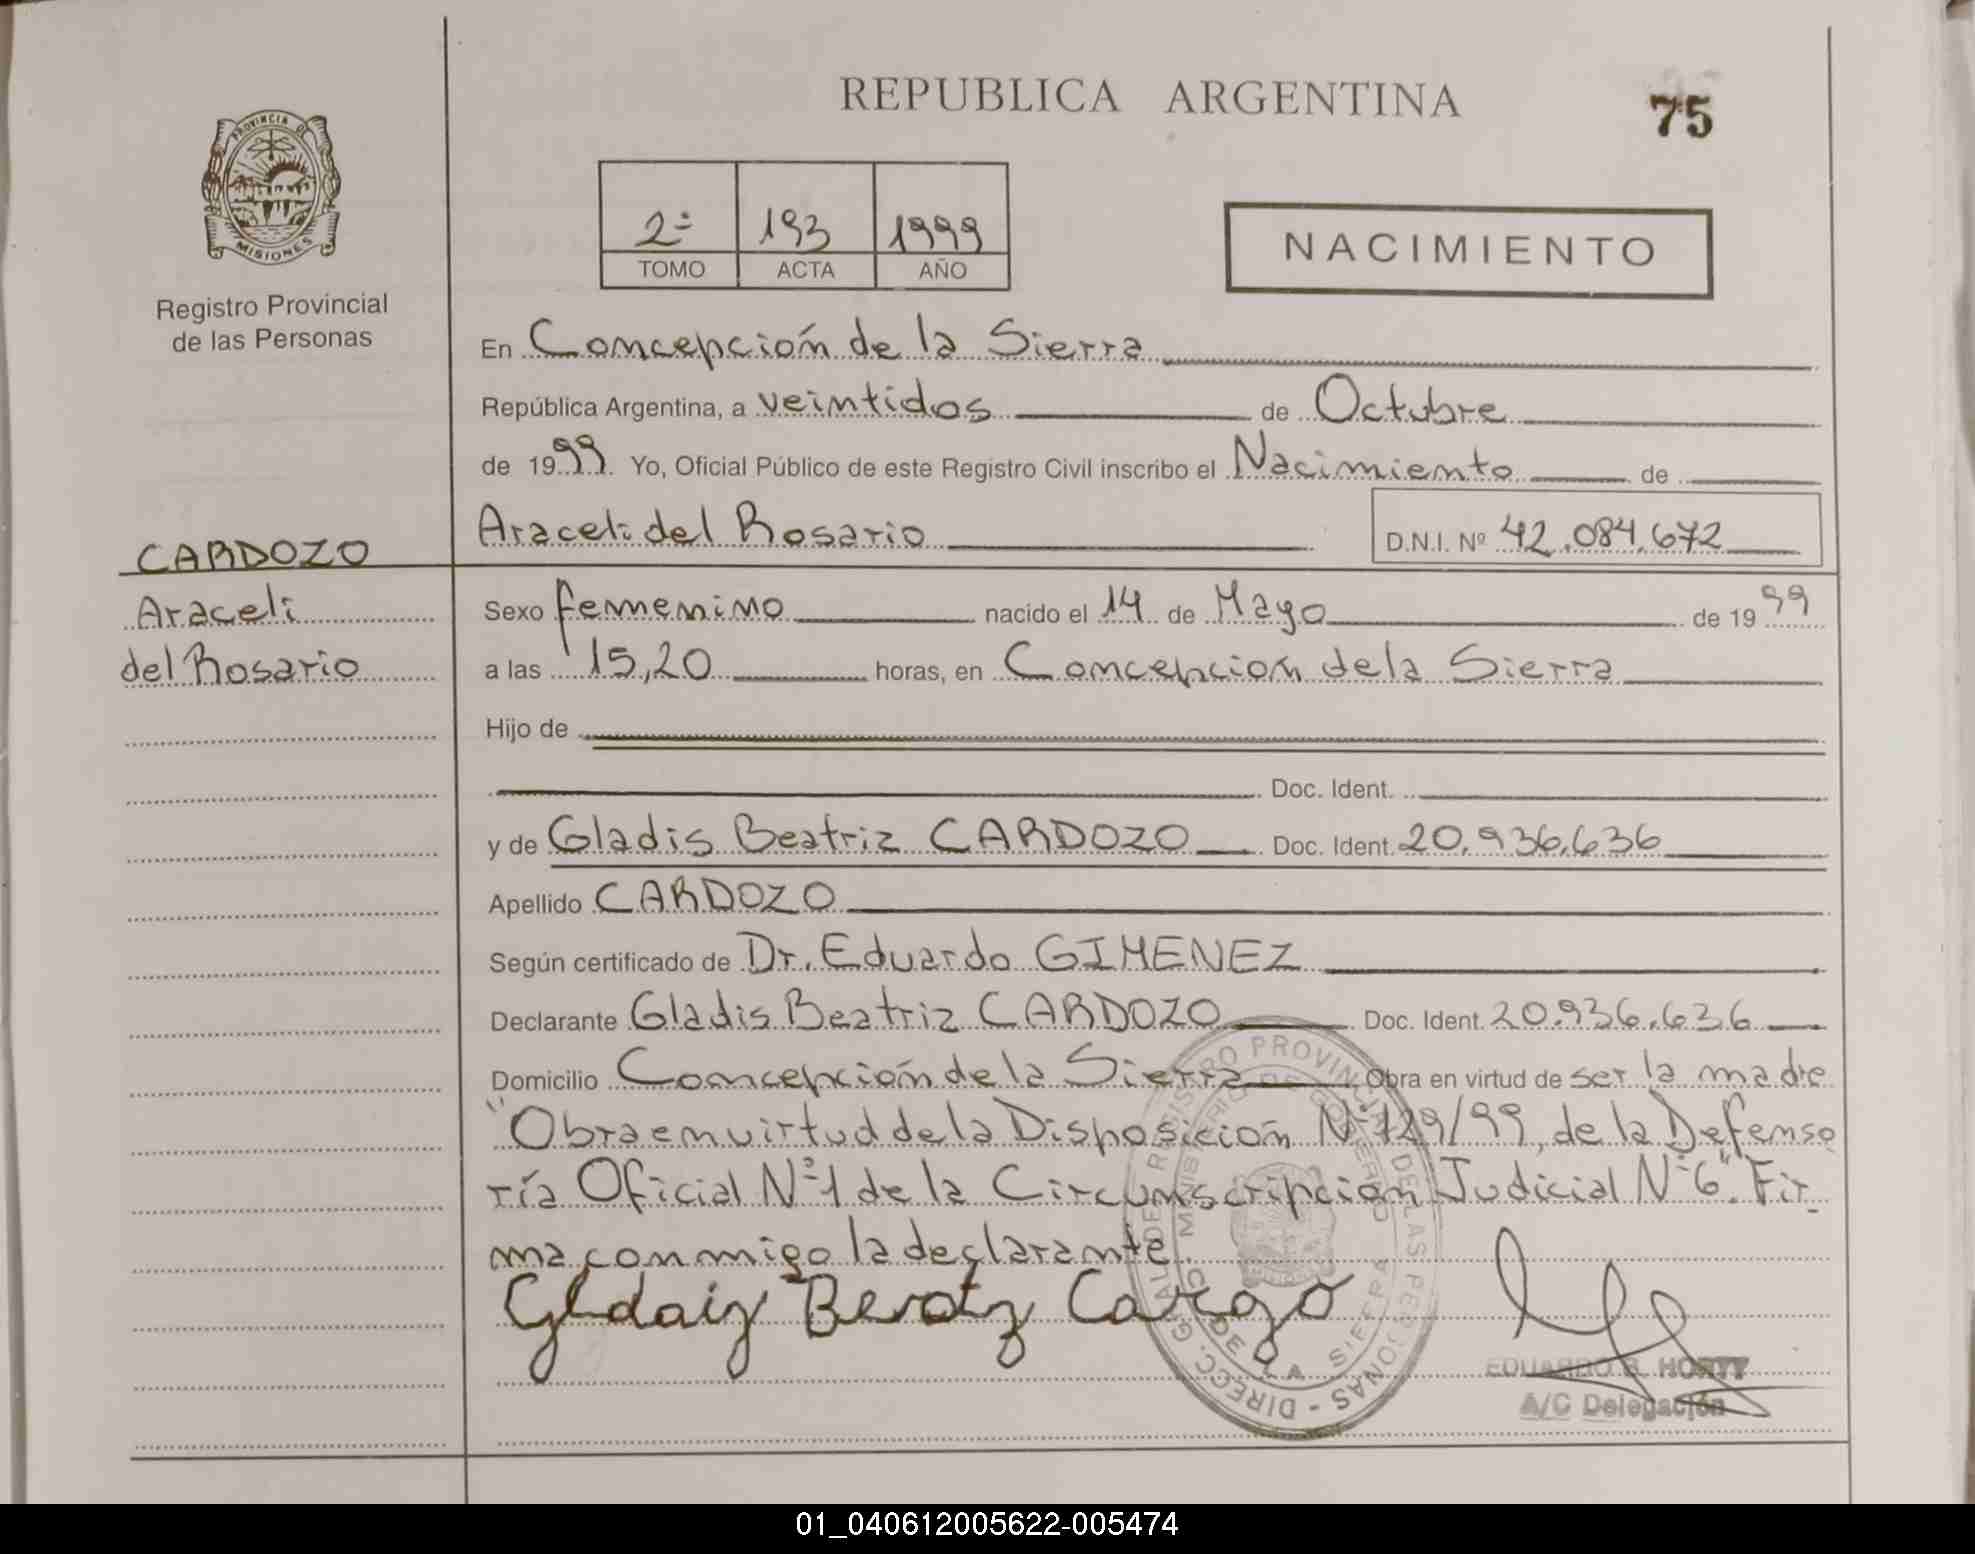 REPUBLICA ARGENTINA
75
PROVINCIA DE
MISIONES
Registro Provincial
de las Personas
2º 193 1999
TOMO ACTA AÑO
NACIMIENTO
En Concepción de la Sierra
República Argentina, a veintidos de Octubre
de 1999. Yo, Oficial Público de este Registro Civil inscribo el Nacimiento de
Araceli del Rosario D.N.I. Nº 42.084.672
CARDOZO
Araceli
del Rosario
Sexo femenino nacido el 14 de Mayo de 1999
a las 15,20 horas, en Concepcion de la Sierra
Hijo de
Doc. Ident.
y de Gladis Beatriz CARDOZO Doc. Ident. 20.936.636
Apellido CARDOZO
Según certificado de Dr. Eduardo GIMENEZ
Declarante Gladis Beatriz CARDOZO Doc. Ident. 20.936.636
Domicilio Concepción de la Sierra Obra en virtud de ser la madre
"Obra en virtud de la Disposición Nº 129/99, de la Defenso
ría Oficial Nº 1 de la Circunscripción Judicial Nº 6". Fir
ma conmigo la declarante.
DIRECC. GRAL. DE REGISTRO PROVINCIAL DE LAS PERSONAS
MINISTERIO DE GOBIERNO
C. DE LA SIERRA
EDUARDO R. HORTT
A/C Delegación
01_040612005622-005474